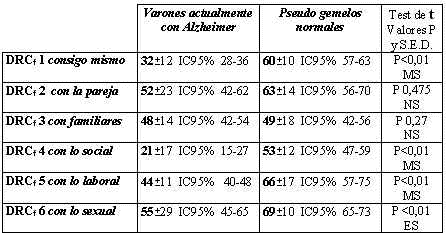 Varones actualmente con Alzheimer
Pseudo gemelos normales
Test de t Valores P y S.E.D.
DRC† 1 consigo mismo 32±12 IC95% 28-36 60±10 IC95% 57-63 P<0,01 MS
DRC† 2 con la pareja 52±23 IC95% 42-62 63±14 IC95% 56-70 P 0,475 NS
DRC† 3 con familiares 48±14 IC95% 42-54 49±18 IC95% 42-56 P 0,27 NS
DRC† 4 con lo social 21±17 IC95% 15-27 53±12 IC95% 47-59 P<0,01 MS
DRC† 5 con lo laboral 44±11 IC95% 40-48 66±17 IC95% 57-75 P<0,01 MS
DRC† 6 con lo sexual 55±29 IC95% 45-65 69±10 IC95% 65-73 P <0,01 ES